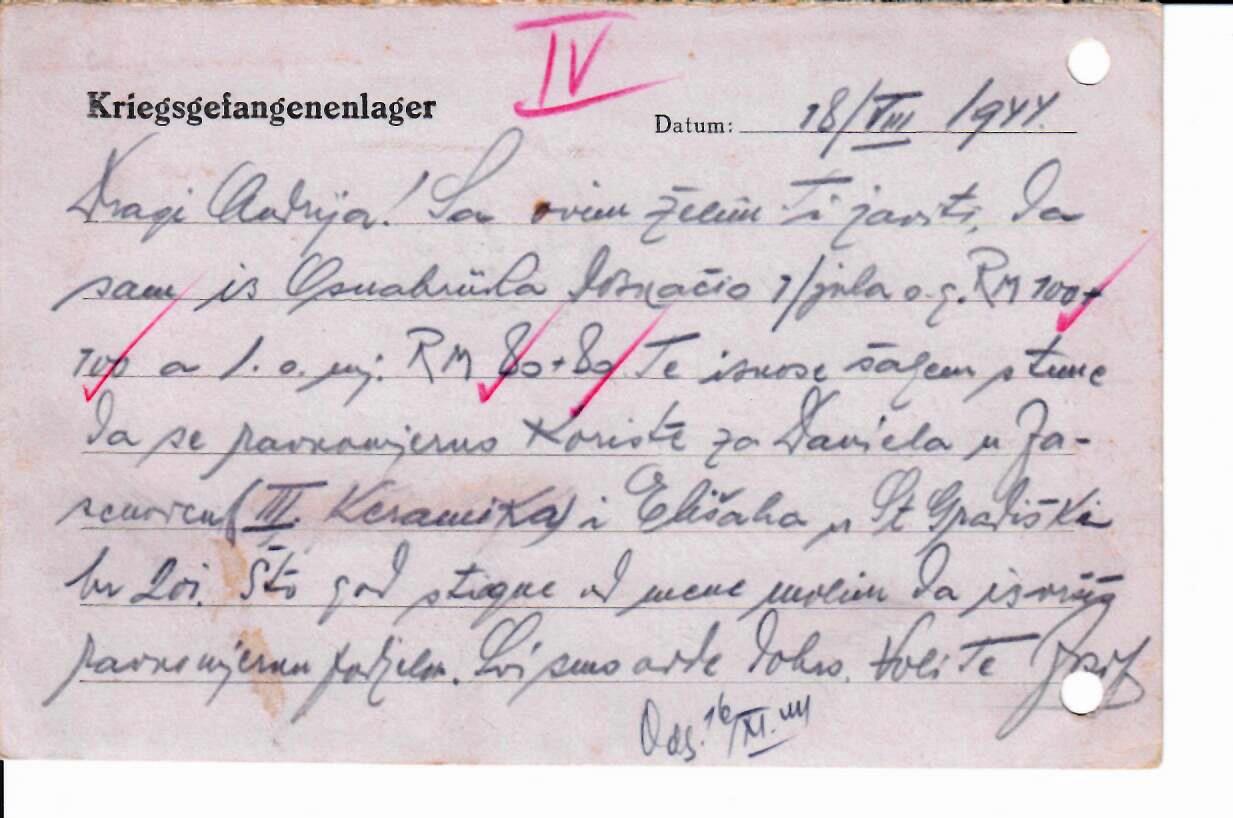 IV
Kriegsgefangenenlager
Datum: 18/VIII 1944.
Dragi Andrija! Sa ovim želim Ti javiti, da
sam iz Osnabrücka doznačio 1/jula o.g. RM 100+
100 a 1. o. mj. RM 80+80 Te iznose šaljem s time
da se ravnomjerno koriste za Daniela u Ja-
senovcu (III. Keramika) i Elišaha u St Gradiški
br
Što god stigne od mene molim da izvršiš
ravnomjernu podjelu. Svi smo ovde dobro. Voli Te Josif
Odg. 16/XI. 44